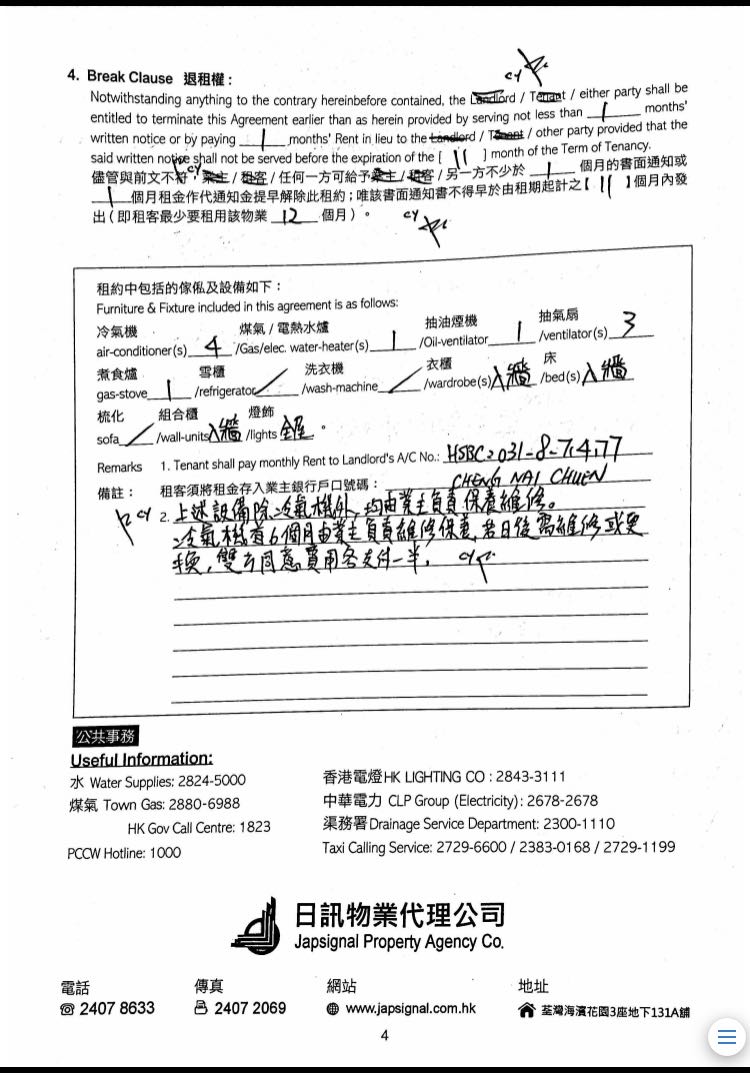 4. Break Clause 退租權：
Notwithstanding anything to the contrary hereinbefore contained, the Landlord / Tenant / either party shall be
entitled to terminate this Agreement earlier than as herein provided by serving not less than 1 months'
written notice or by paying 1 months' Rent in lieu to the Landlord / Tenant / other party provided that the
said written notice shall not be served before the expiration of the [ 11 ] month of the Term of Tenancy.
儘管與前文不符，業主 / 租客 / 任何一方可給予業主 / 租客 / 另一方不少於 1 個月的書面通知或
1 個月租金作代通知金提早解除此租約；唯該書面通知書不得早於由租期起計之【 11 】個月內發
出（即租客最少要租用該物業 12 個月）。
租約中包括的傢俬及設備如下：
Furniture & Fixture included in this agreement is as follows:
冷氣機 煤氣 / 電熱水爐 抽油煙機 抽氣扇
air-conditioner(s) 4 /Gas/elec. water-heater(s) 1 /Oil-ventilator 1 /ventilator(s) 3
煮食爐 雪櫃 洗衣機 衣櫃 床
gas-stove 1 /refrigerator /wash-machine /wardrobe(s) 入牆 /bed(s) 入牆
梳化 組合櫃 燈飾
sofa /wall-units 入牆 /lights 全屋 。
Remarks 1. Tenant shall pay monthly Rent to Landlord's A/C No.: HSBC: 031-8-7,4,77
備註： 租客須將租金存入業主銀行戶口號碼： CHENG NAI CHUEN
2. 上述設備除冷氣機外，均由業主負責保養維修。
冷氣機首6個月由業主負責維修保養，若日後需維修或更
換，雙方同意費用各支付一半．
公共事務
Useful Information:
水 Water Supplies: 2824-5000 香港電燈HK LIGHTING CO : 2843-3111
煤氣 Town Gas: 2880-6988 中華電力 CLP Group (Electricity): 2678-2678
HK Gov Call Centre: 1823 渠務署Drainage Service Department: 2300-1110
PCCW Hotline: 1000 Taxi Calling Service: 2729-6600 / 2383-0168 / 2729-1199
日訊物業代理公司
Japsignal Property Agency Co.
電話 傳真 網站 地址
2407 8633 2407 2069 www.japsignal.com.hk 荃灣海濱花園3座地下131A舖
4